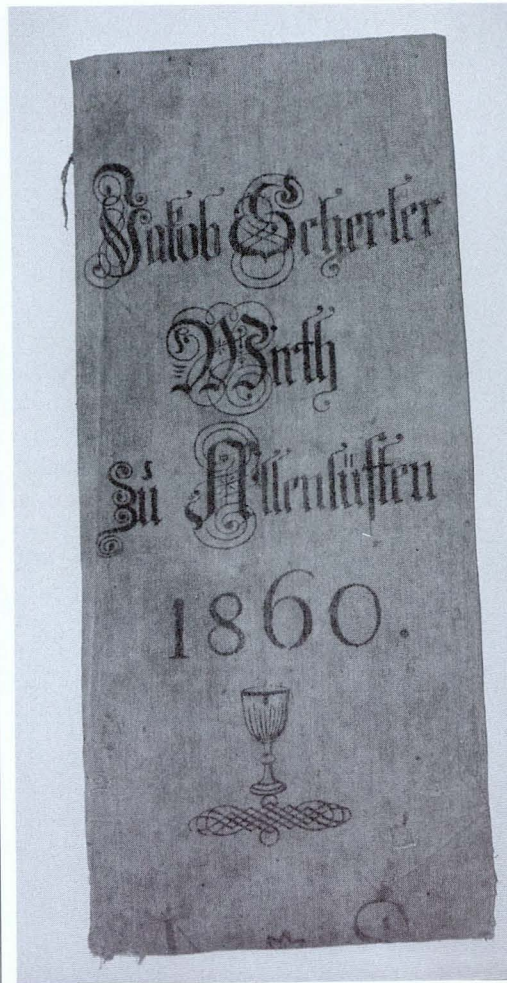 Jakob Scherler
Wirth
zu Allenlüften
1860.